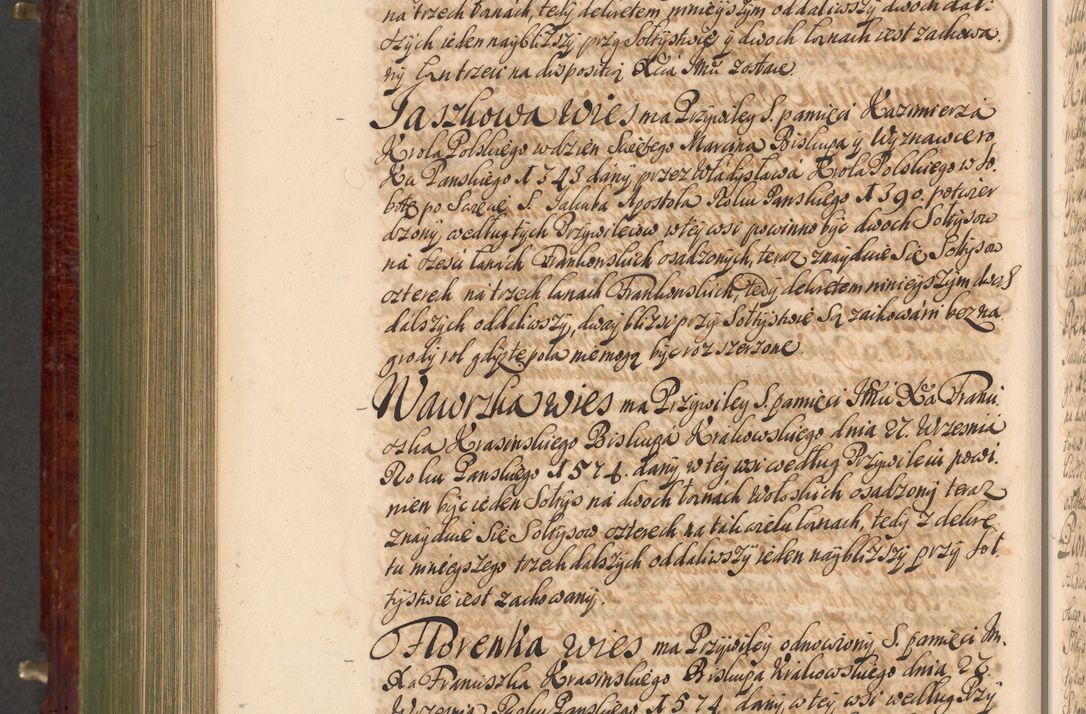 na trzech łanach, tedy dekretem mnieyszym oddaliwszy dwoch dal:
szych ieden naybliższy przy Sołtystwie y dwoch łanach iest zachowa
ny łan trzeci na dispositią Xcia Jmći zostaie
Jaszkowa wies ma Przywiley S. pamięci Kazimierza
Krola Polskiego w dzien Swiętego Marcina Biskupa y Wyznawce ro
ku Panskiego 1343 dany, przez Władysława Krola Polskiego w So
botę po Swięcie S. Jakuba Apostoła Roku Panskiego 1390. potwier
dzony, według tych Przywileiow w tey wsi powinno być dwoch Sołtysow
na sześci łanach Frankonskich osadzonych, teraz znayduie się Sołtysow
czterech na trzech łanach Frankonskich, tedy dekretem mnieyszym dwoch
dalszych oddaliwszy, dway bliżsi przy Sołtystwie są zachowani bez na
grody rol gdyż te pola niemogą być rozszerzone.
Wawrzka wies ma Przywiley S. pamięci Jmći Xa Franci
szka Krasinskiego Biskupa Krakowskiego dnia 27. Wrzesnia
Roku Panskiego 1574. dany, w tey wsi według Przywileiu powi
nien być ieden Sołtys na dwoch łanach Wołoskich osadzony teraz
znayduie się Sołtysow czterech na tak wielu łanach, tedy z dekre
tu mnieyszego trzech dalszych oddaliwszy ieden naybliższy przy Soł
tystwie iest zachowany.
Florenka wies ma Przywiley odnowiony S. pamięci Jm.
Xa Franciszka Krasinskiego Biskupa Krakowskiego dnia 27.
Wrzesnia Roku Panskiego 1574. dany, w tey wsi według Przy